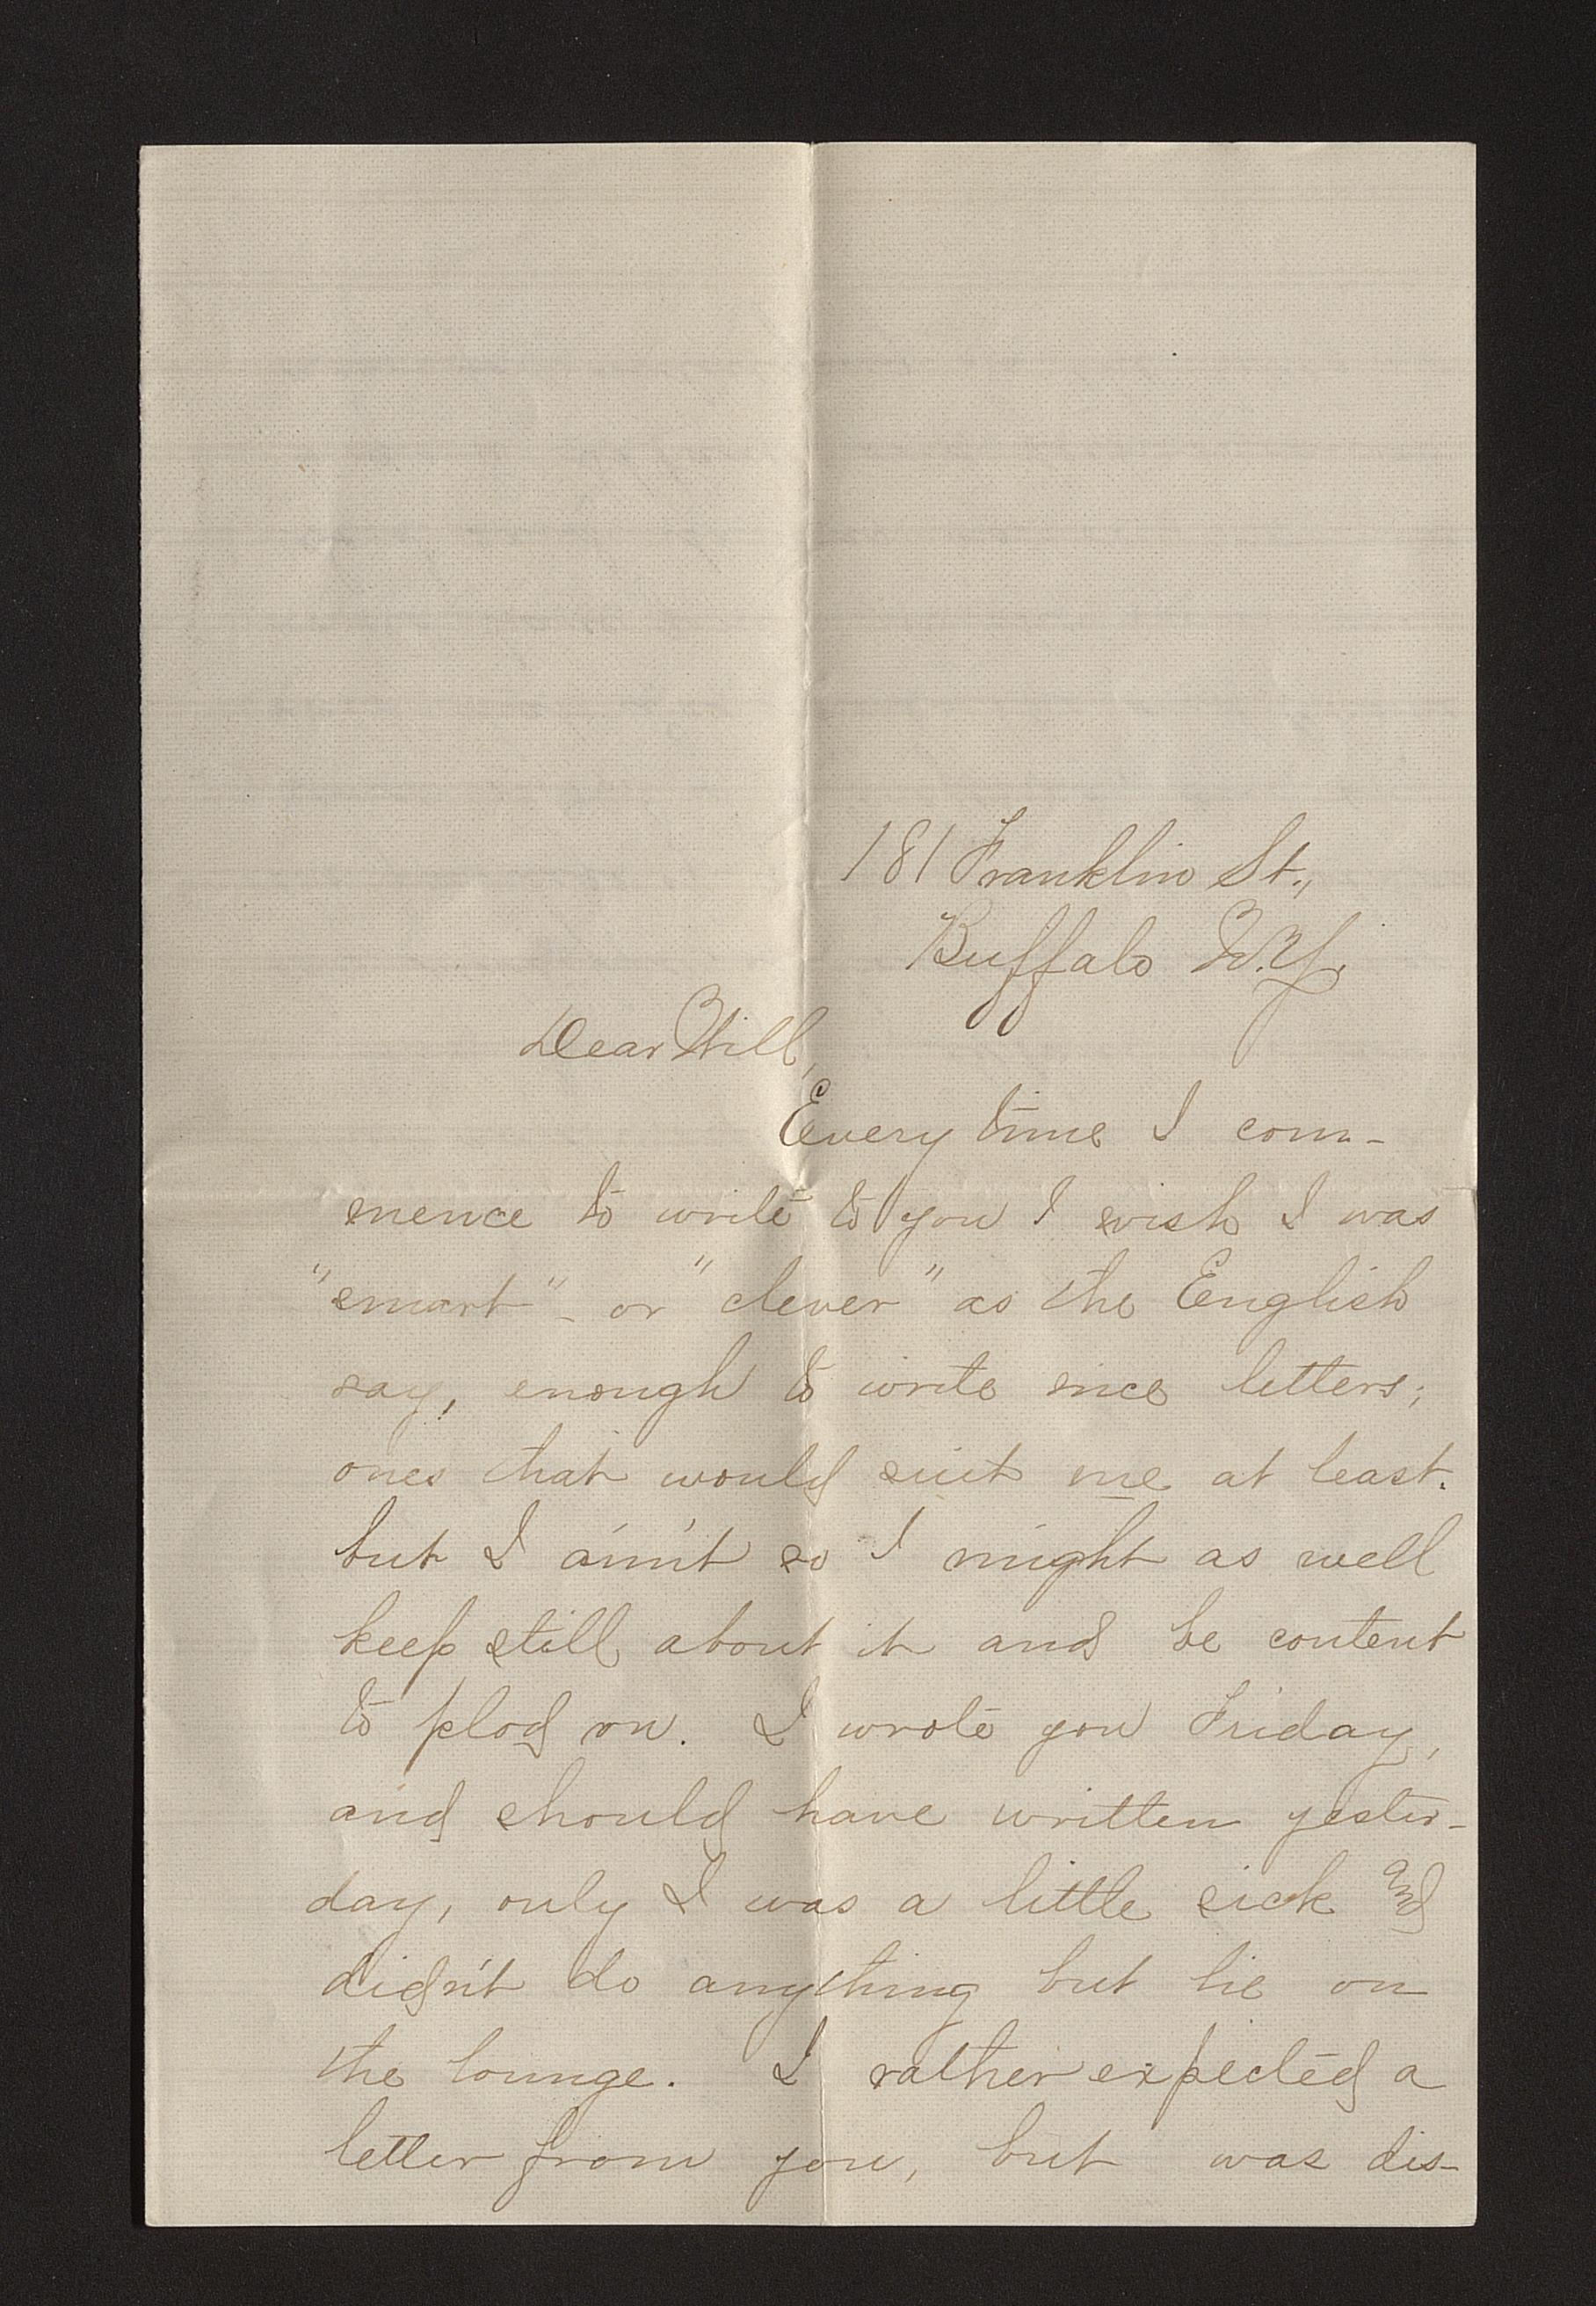 181 Franklin St.,
Buffalo N.Y.
Dear Will,
Every time I com-
mence to write to you I wish I was
"smart" - or "clever" as the English
say, enough to write nice letters;
ones that would suit me at least.
but I aint so I might as well
keep still about it and be content
to plod on. I wrote you Friday,
and should have written yester-
day, only I was a little sick and
didn't do anything but lie on
the lounge. I rather expected a
letter from you, but was dis-